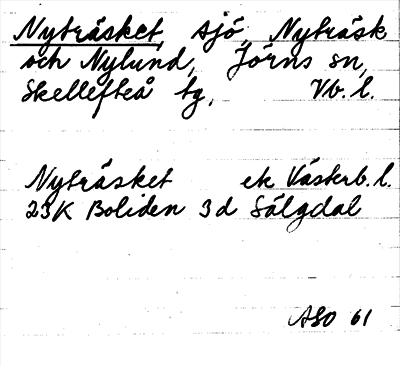 Nyträsket, sjö, Nyträsk
och Nylund, Jörns sn,
Skellefteå tg, Vb. l.
Nyträsket ek Västerb. l.
23K Boliden 3d Sälgdal
ASO 61